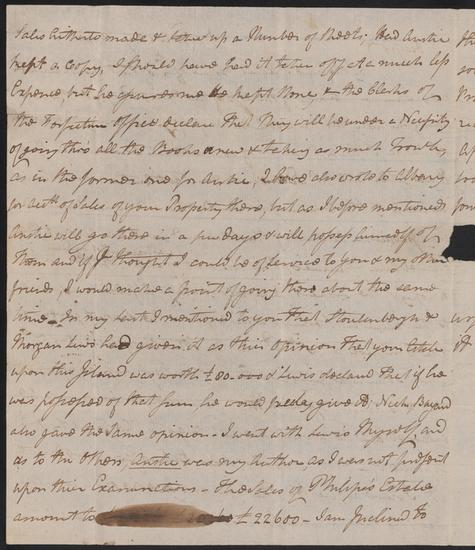 Sales hitherto made & takes up a Number of Sheets; Had Anstie
kept a Copy, I should have had it taken off at a much less
Expence but he assures me he kept None, & the Clerks of
the Forfeiture Office declare that they will be under a Necessity
of going thro' all the Books anew & taking as much Trouble,
as in the former one for Anstie, I have also wrote to Albany
for acct.s of Sales of your Property there, but as I before mentioned
Anstie will go there in a few days & will possess himself of
them and if I thought I could be of service to you & my other
friends, I would make a point of going there about the same
time — In my last I mentioned to you that Stoutenburgh &
Morgan Lewis had given it as their Opinion that your Estate
upon this Island was worth £80.000 & Lewis declared that if he
was possessed of that sum he would give it; Nich. Bayard
also gave the same opinion — I went with Lewis Myself and
as to the others Anstie was my Author as I was not present
upon their Examinations — The Sales of Philips's Estate
amount to £22600 — I am Inclined to